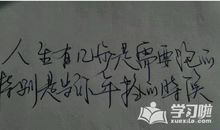 人生有几步是需要跑的
特别是当你年轻的时候
学习啦
www.xuexila.com